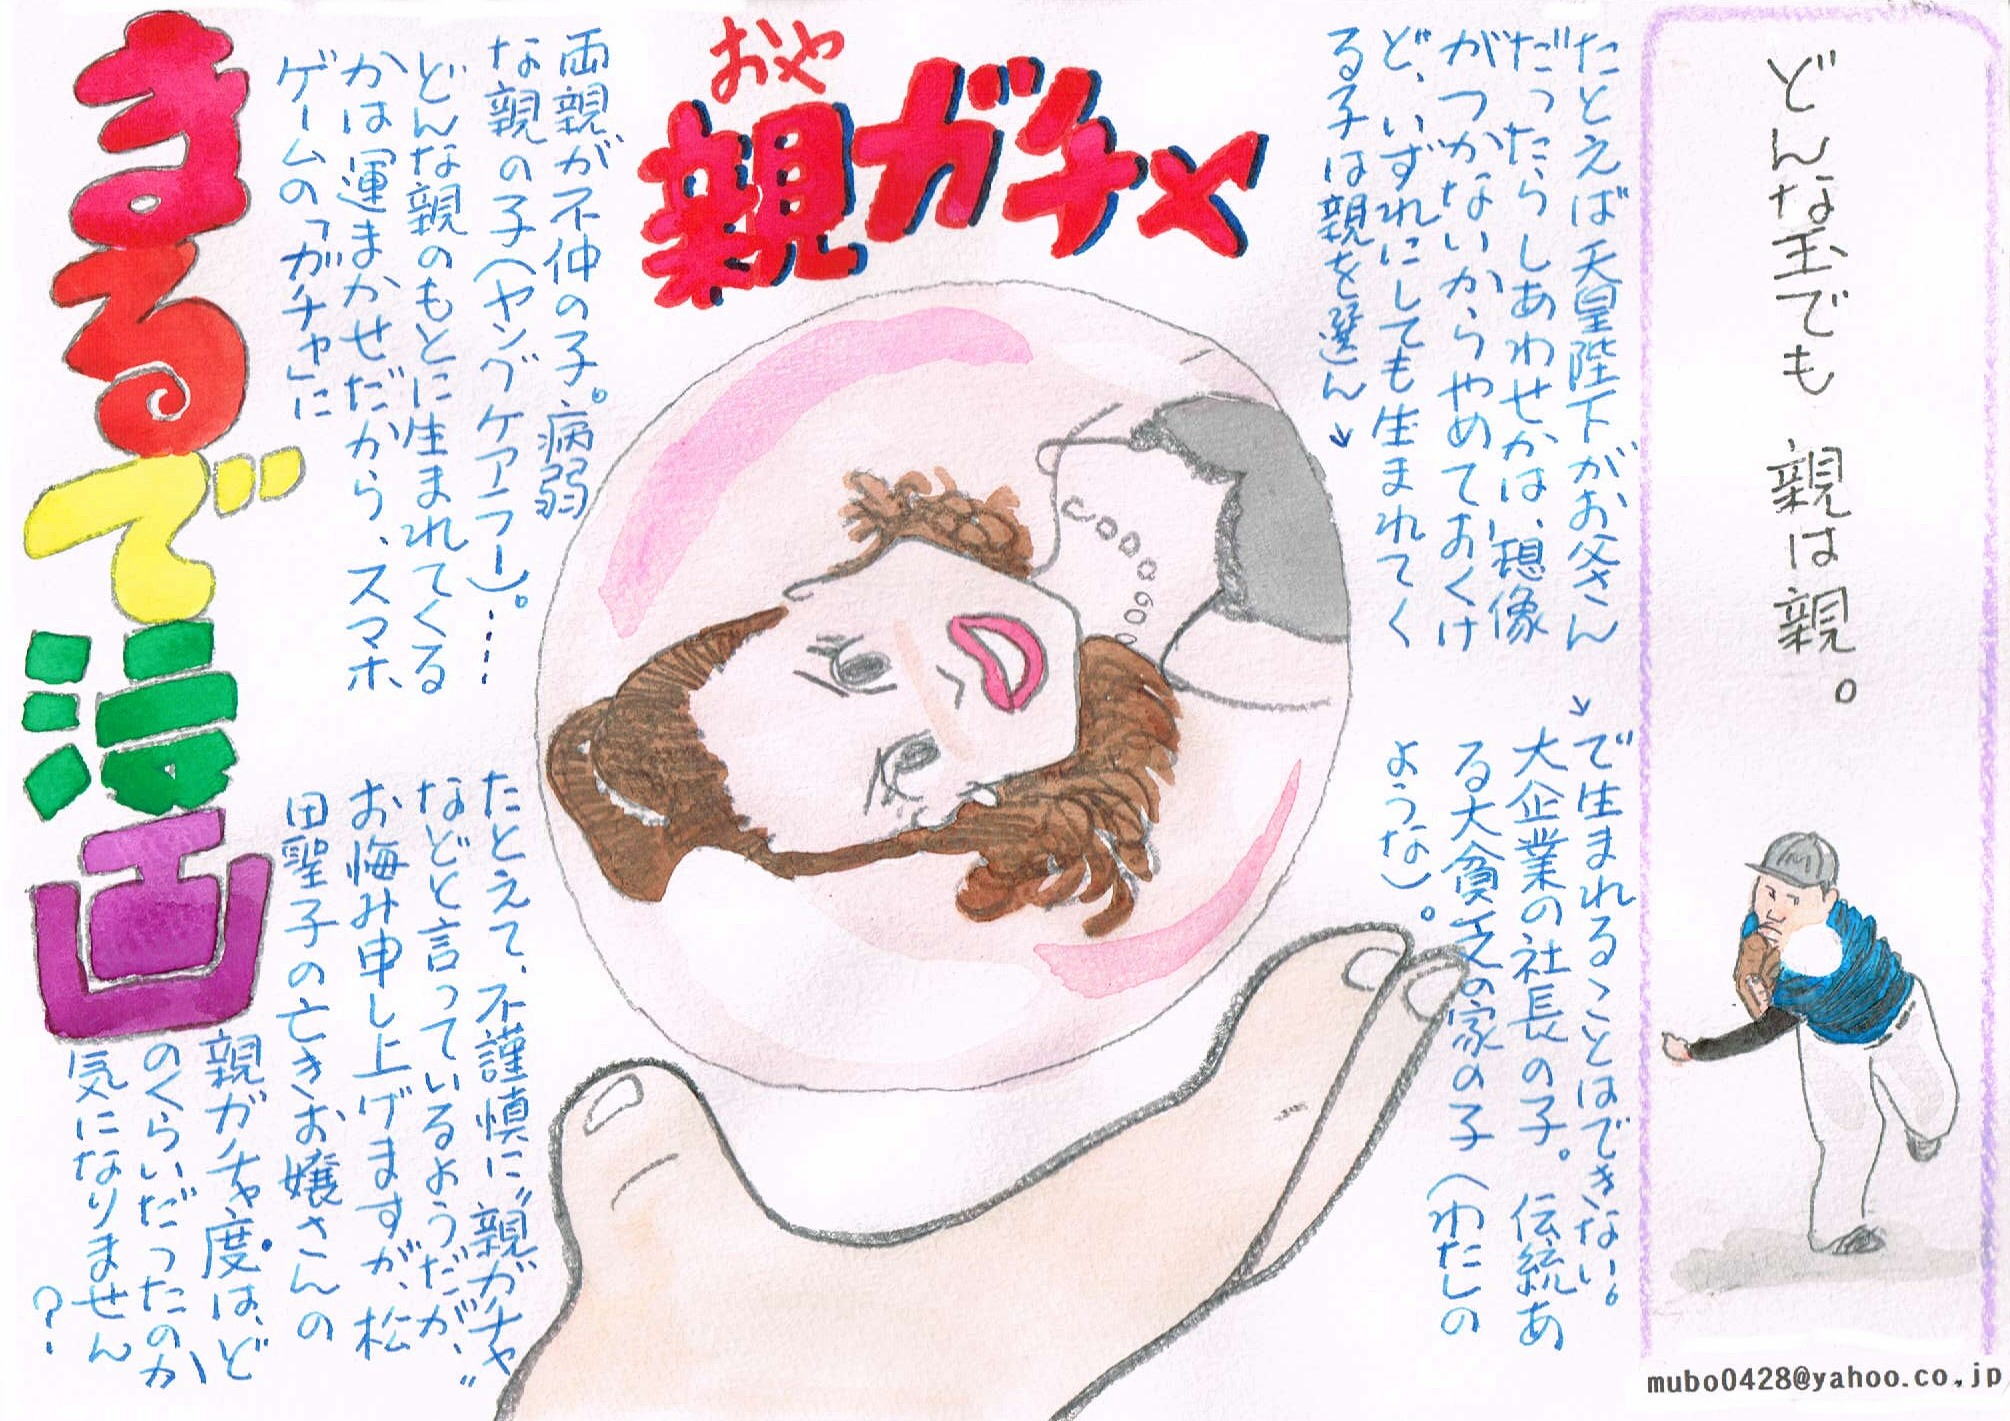 どんな玉でも 親は親。
たとえば天皇陛下がお父さん
だったらしあわせかは、想像
がつかないからやめておくけ
ど、いずれにしても生まれてく
る子は親を選ん↓
↓で生まれることはできない。
大企業の社長の子。伝統あ
る大貧乏の家の子（わたしの
ような）。
おや
親ガチャ
両親が不仲の子。病弱
な親の子（ヤングケアラー）。……
どんな親のもとに生まれてくる
かは運まかせだから、スマホ
ゲームの「ガチャ」に
たとえて、不謹慎に〝親ガチャ〟
などと言っているようだが、
お悔み申し上げますが、松
田聖子の亡きお嬢さんの
親ガチャ度は、ど
のくらいだったのか
気になりません
？
まるで漫画
mubo0428@yahoo.co.jp